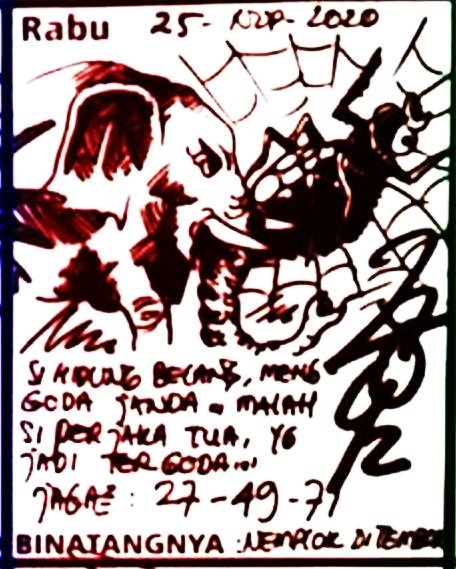 Rabu 25-NOP-2020
SI HIDUNG BELANG, MENG
GODA JANDA. MALAH
SI PERJAKA TUA, YG
JADI TERGODA...
JAGAZ: 27-49-71
BINATANGNYA: NEMPLOK DI TEMBOK